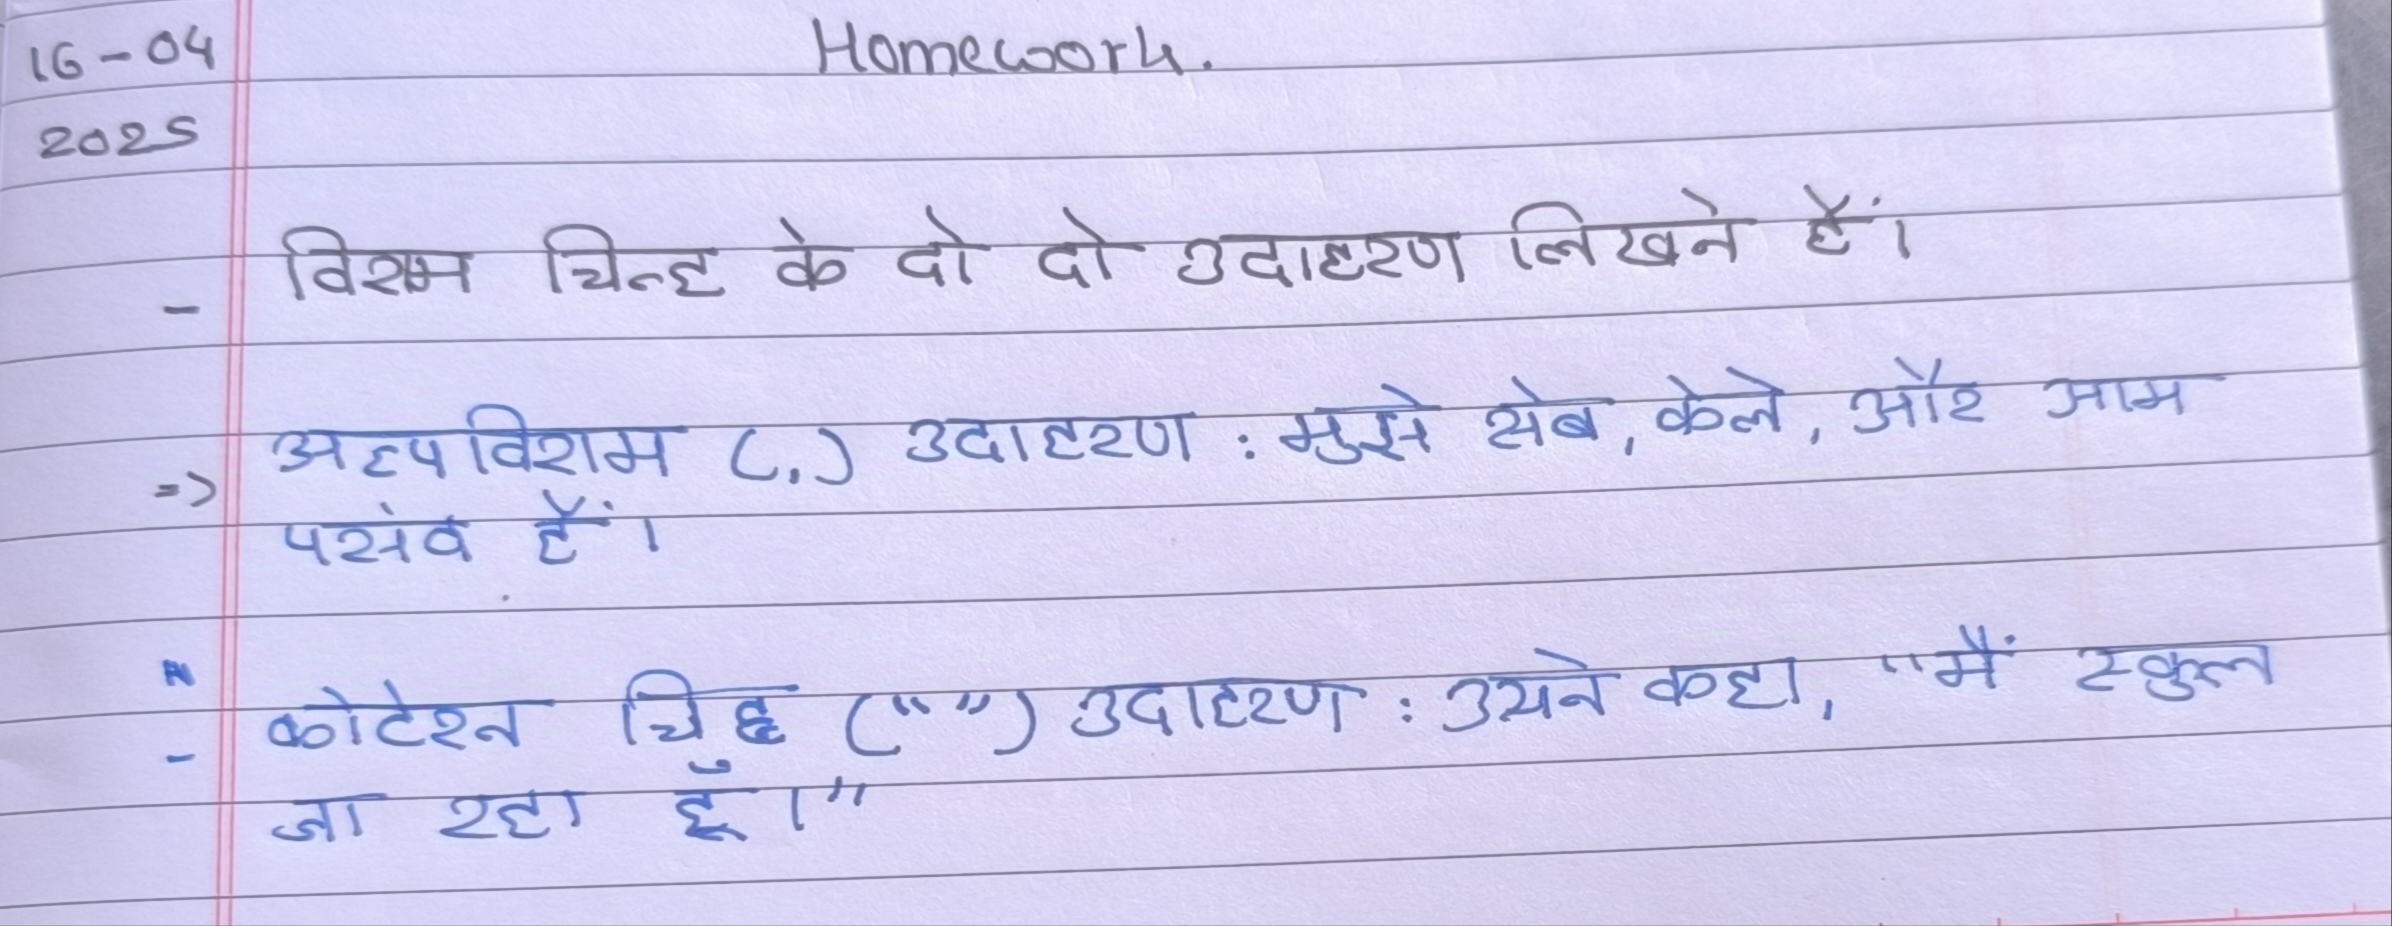 16-04
Homework.
2025
- विराम चिन्ह के दो दो उदाहरण लिखने हैं।
=> अल्पविराम (,) उदाहरण : मुझे सेब, केले, और आम
पसंद हैं।
- कोटेशन चिह्न (“”) उदाहरण : उसने कहा, "मैं स्कुल
जा रहा हूँ।"